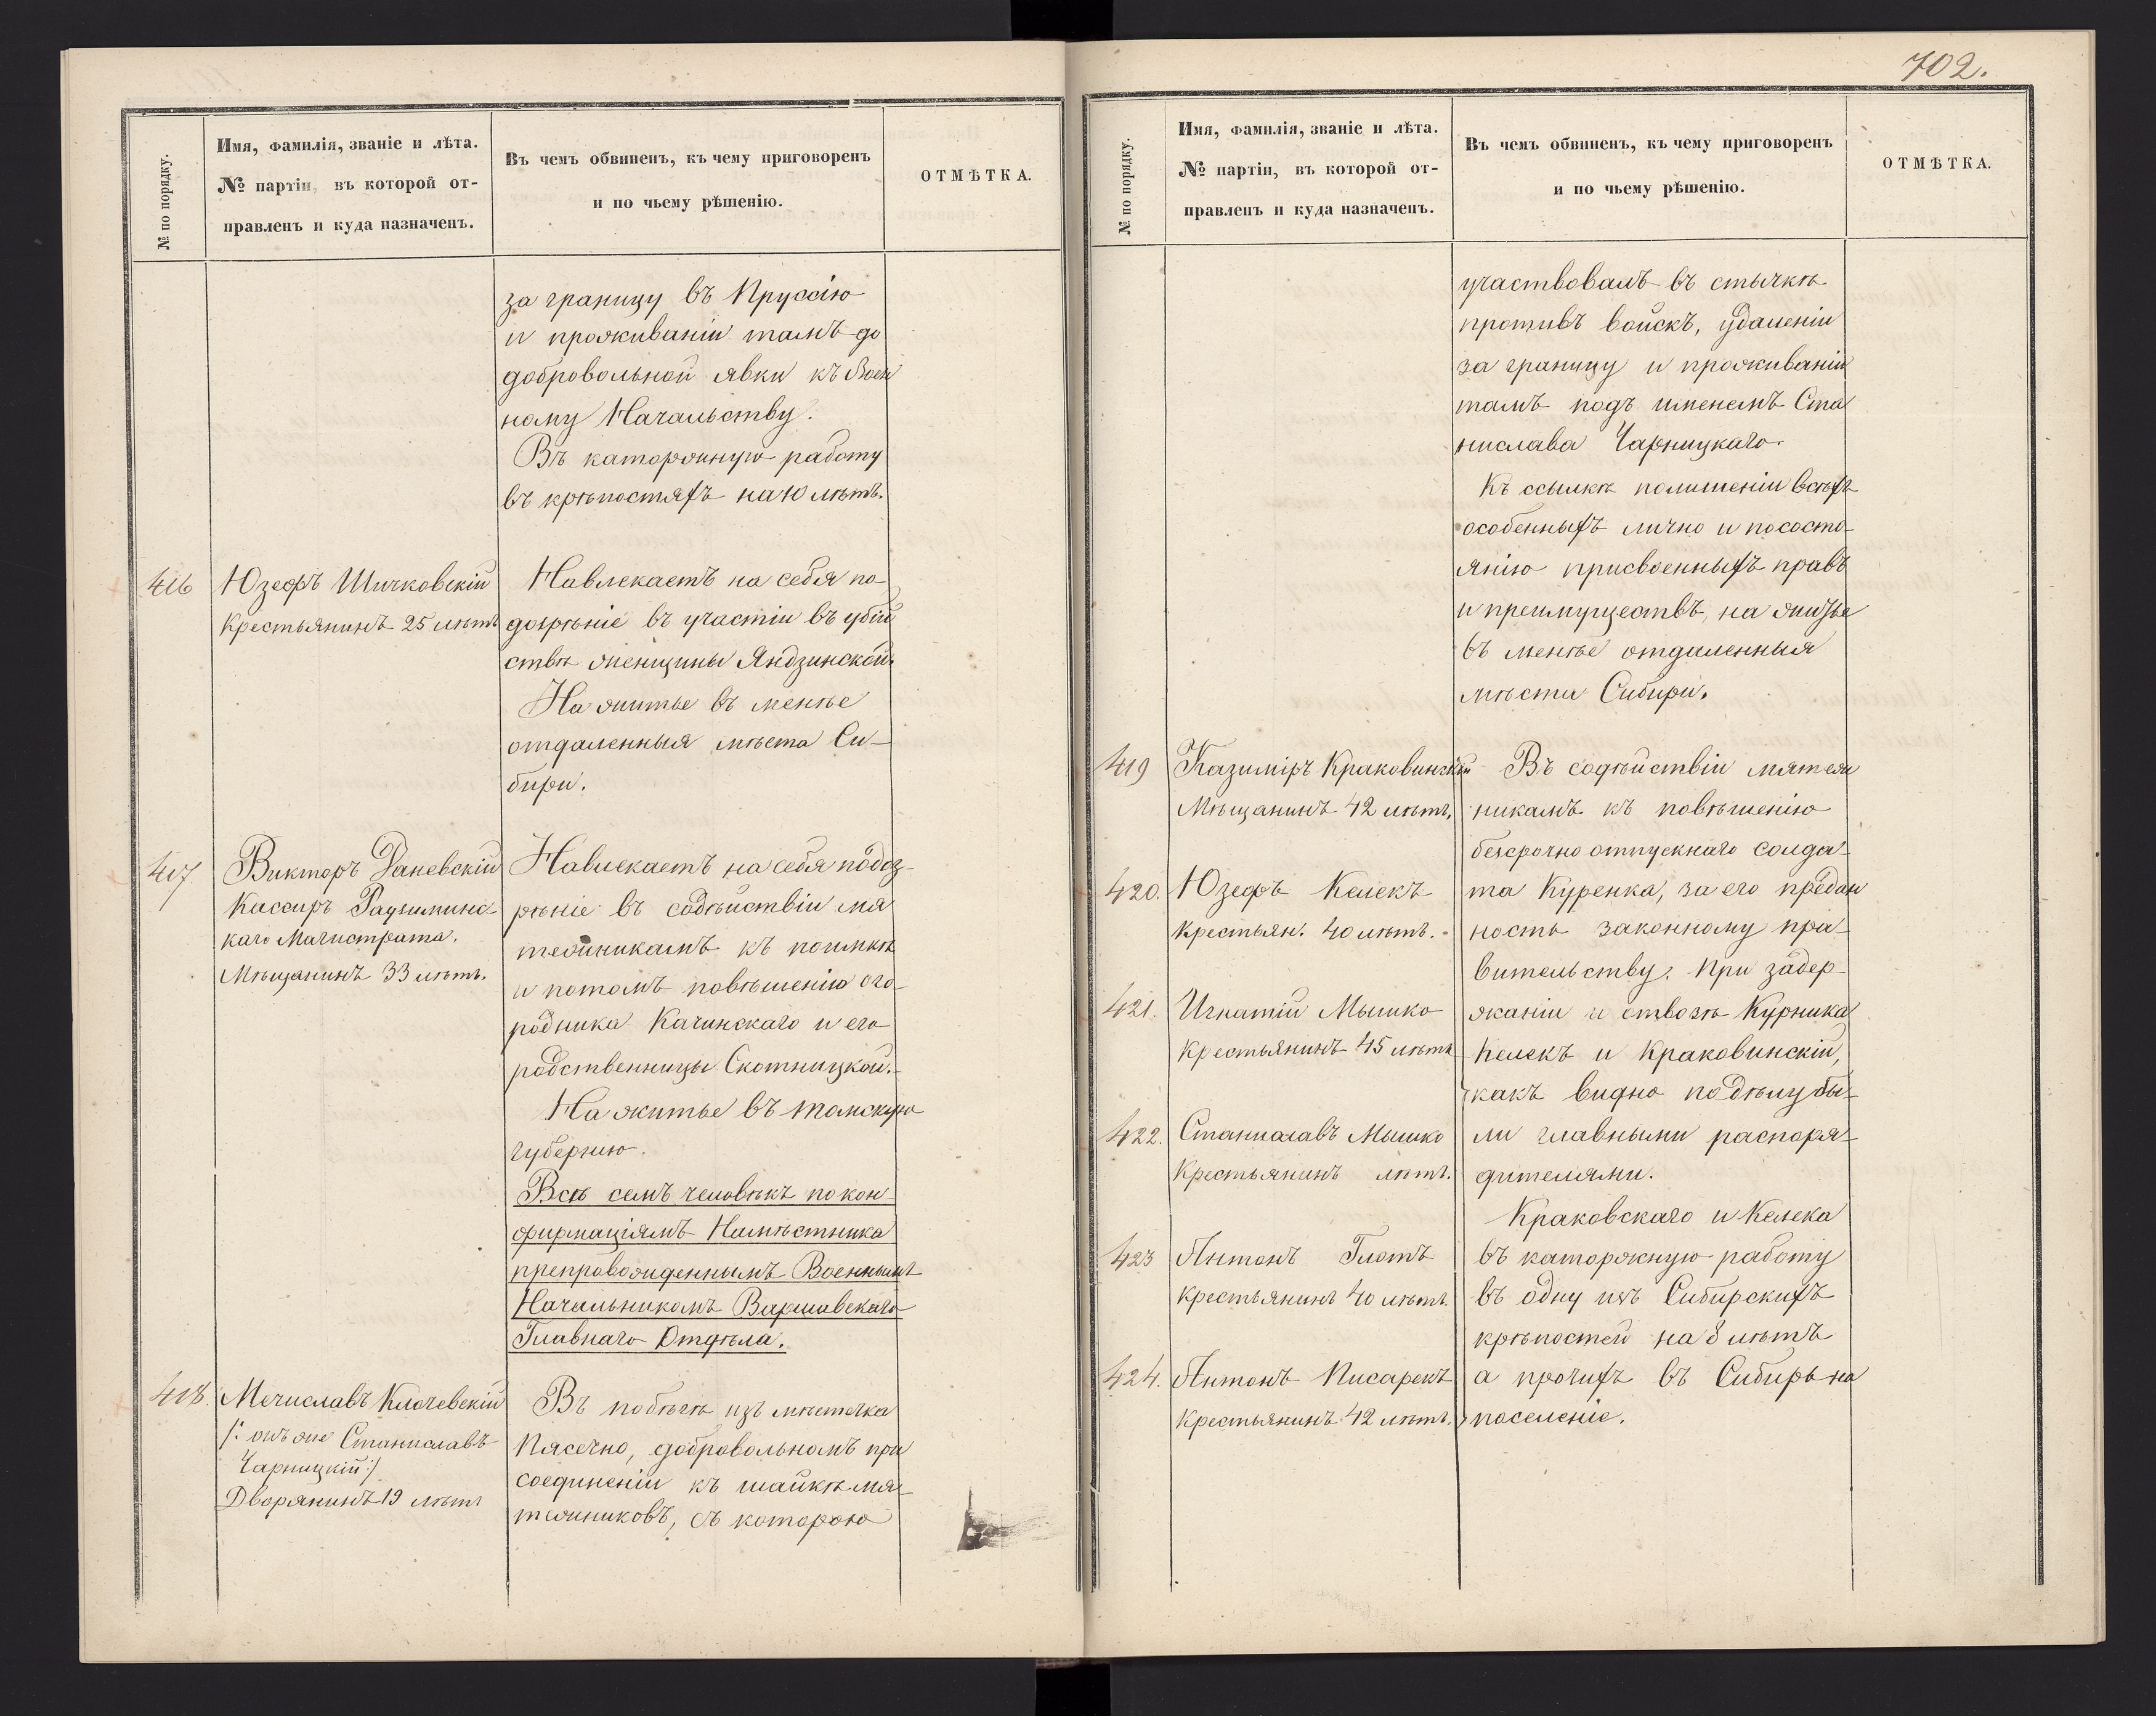 702.
№ по порядку.
Имя, фамилія, званіе и лѣта.
№ партіи, въ которой от-
правленъ и куда назначенъ.
Въ чемъ обвиненъ, къ чему приговоренъ
и по чьему рѣшенію.
ОТМѢТКА.
за границу въ Пруссію
и проживаніи тамъ до
добровольной явки къ Воен
ному Начальству.
Въ каторжную работу
въ крѣпостяхъ на 10 лѣтъ.
416
Юзефъ Шичковскій
Крестьянинъ 25 лѣтъ
Навлекаетъ на себя по-
дозрѣніе въ участіи въ убій
ствѣ женщины Яндзинской.
На житье въ менѣе
отдаленныя мѣста Си-
бири.
417.
Викторъ Даневскій
Кассиръ Радзиминс-
каго Магистрата.
Мѣщанинъ 33 лѣтъ.
Навлекаетъ на себя подоз-
рѣніе въ содѣйствіи мя
тежникамъ къ поимкѣ
и потомъ повѣшенію ого-
родника Качинскаго и его
родственницы Скотницкой.
На житье въ Томскую
губернію.
Всѣ семь человѣкъ по кон-
фирмаціямъ Намѣстника
препровожденнымъ Военнымъ
Начальникомъ Варшавскаго
Главнаго Отдѣла.
418.
Мечиславъ Клочевскій
/: онъ же Станиславъ
Чарницкій :/
Дворянинъ 19 лѣтъ
Въ побѣгѣ изъ мѣстечка
Пясечно, добровольномъ при
соединеніи къ шайкѣ мя-
тежниковъ, съ которою
№ по порядку.
Имя, фамилія, званіе и лѣта.
№ партіи, въ которой от-
правленъ и куда назначенъ.
Въ чемъ обвиненъ, къ чему приговоренъ
и по чьему рѣшенію.
ОТМѢТКА.
участвовалъ въ стычкѣ
противъ войскъ, удаленіи
за границу и проживаніи
тамъ подъ именемъ Ста
нислава Чарницкаго.
Къ ссылкѣ по лишеніи всѣхъ
особенныхъ лично и по состо-
янію присвоенныхъ правъ
и преимуществъ, на житье
въ менѣе отдаленныя
мѣста Сибири.
419
Казиміръ Краковинскій
Мѣщанинъ 42 лѣтъ.
420.
Юзефъ Келекъ
Крестьян. 40 лѣтъ.
421.
Игнатій Мышко
Крестьянинъ 45 лѣтъ
422.
Станиславъ Мышко
Крестьянинъ лѣтъ.
423
Антонъ Глотъ
Крестьянинъ 40 лѣтъ.
424.
Антонъ Писарекъ
Крестьянинъ 42 лѣтъ.
Въ содѣйствіи мятеж
никамъ къ повѣшенію
безсрочно отпускнаго солда-
та Куренка, за его предан
ность законному пра-
вительству. При задер-
жаніи и отвозѣ Курника
Келекъ и Краковинскій,
какъ видно по дѣлу бы-
ли главными распоря-
дителями.
Краковскаго и Келека
въ каторжную работу
въ одну изъ Сибирскихъ
крѣпостей на 8 лѣтъ
а прочихъ въ Сибирь на
поселеніе.